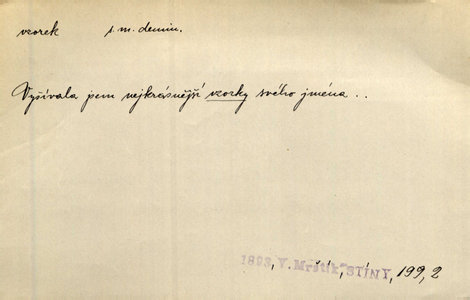 vzorek s. m. demin.
Vyšívala jsem nejkrásnější vzorky svého jména . .
1893, V. Mrštík, STÍNY, 199, 2